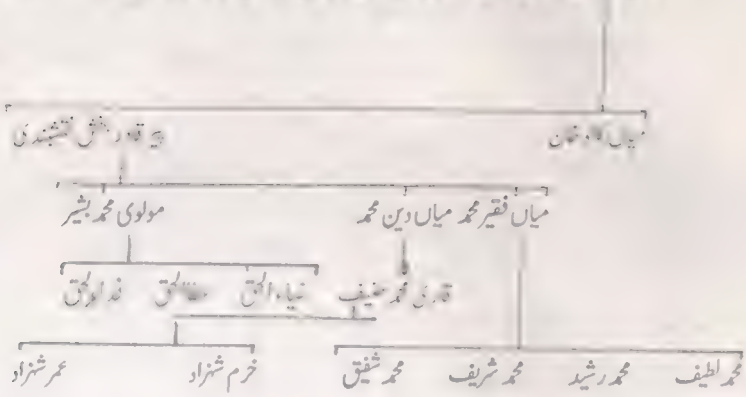 میاں خان پیر قادر بخش نقشبندی
میاں فقیر محمد میاں دین محمد مولوی محمد بشیر
قاری محمد حنیف ضیاء الحق عطاالحق فداءالحق
محمد لطیف محمد رشید محمد شریف محمد شفیق خرم شہزاد عمر شہزاد